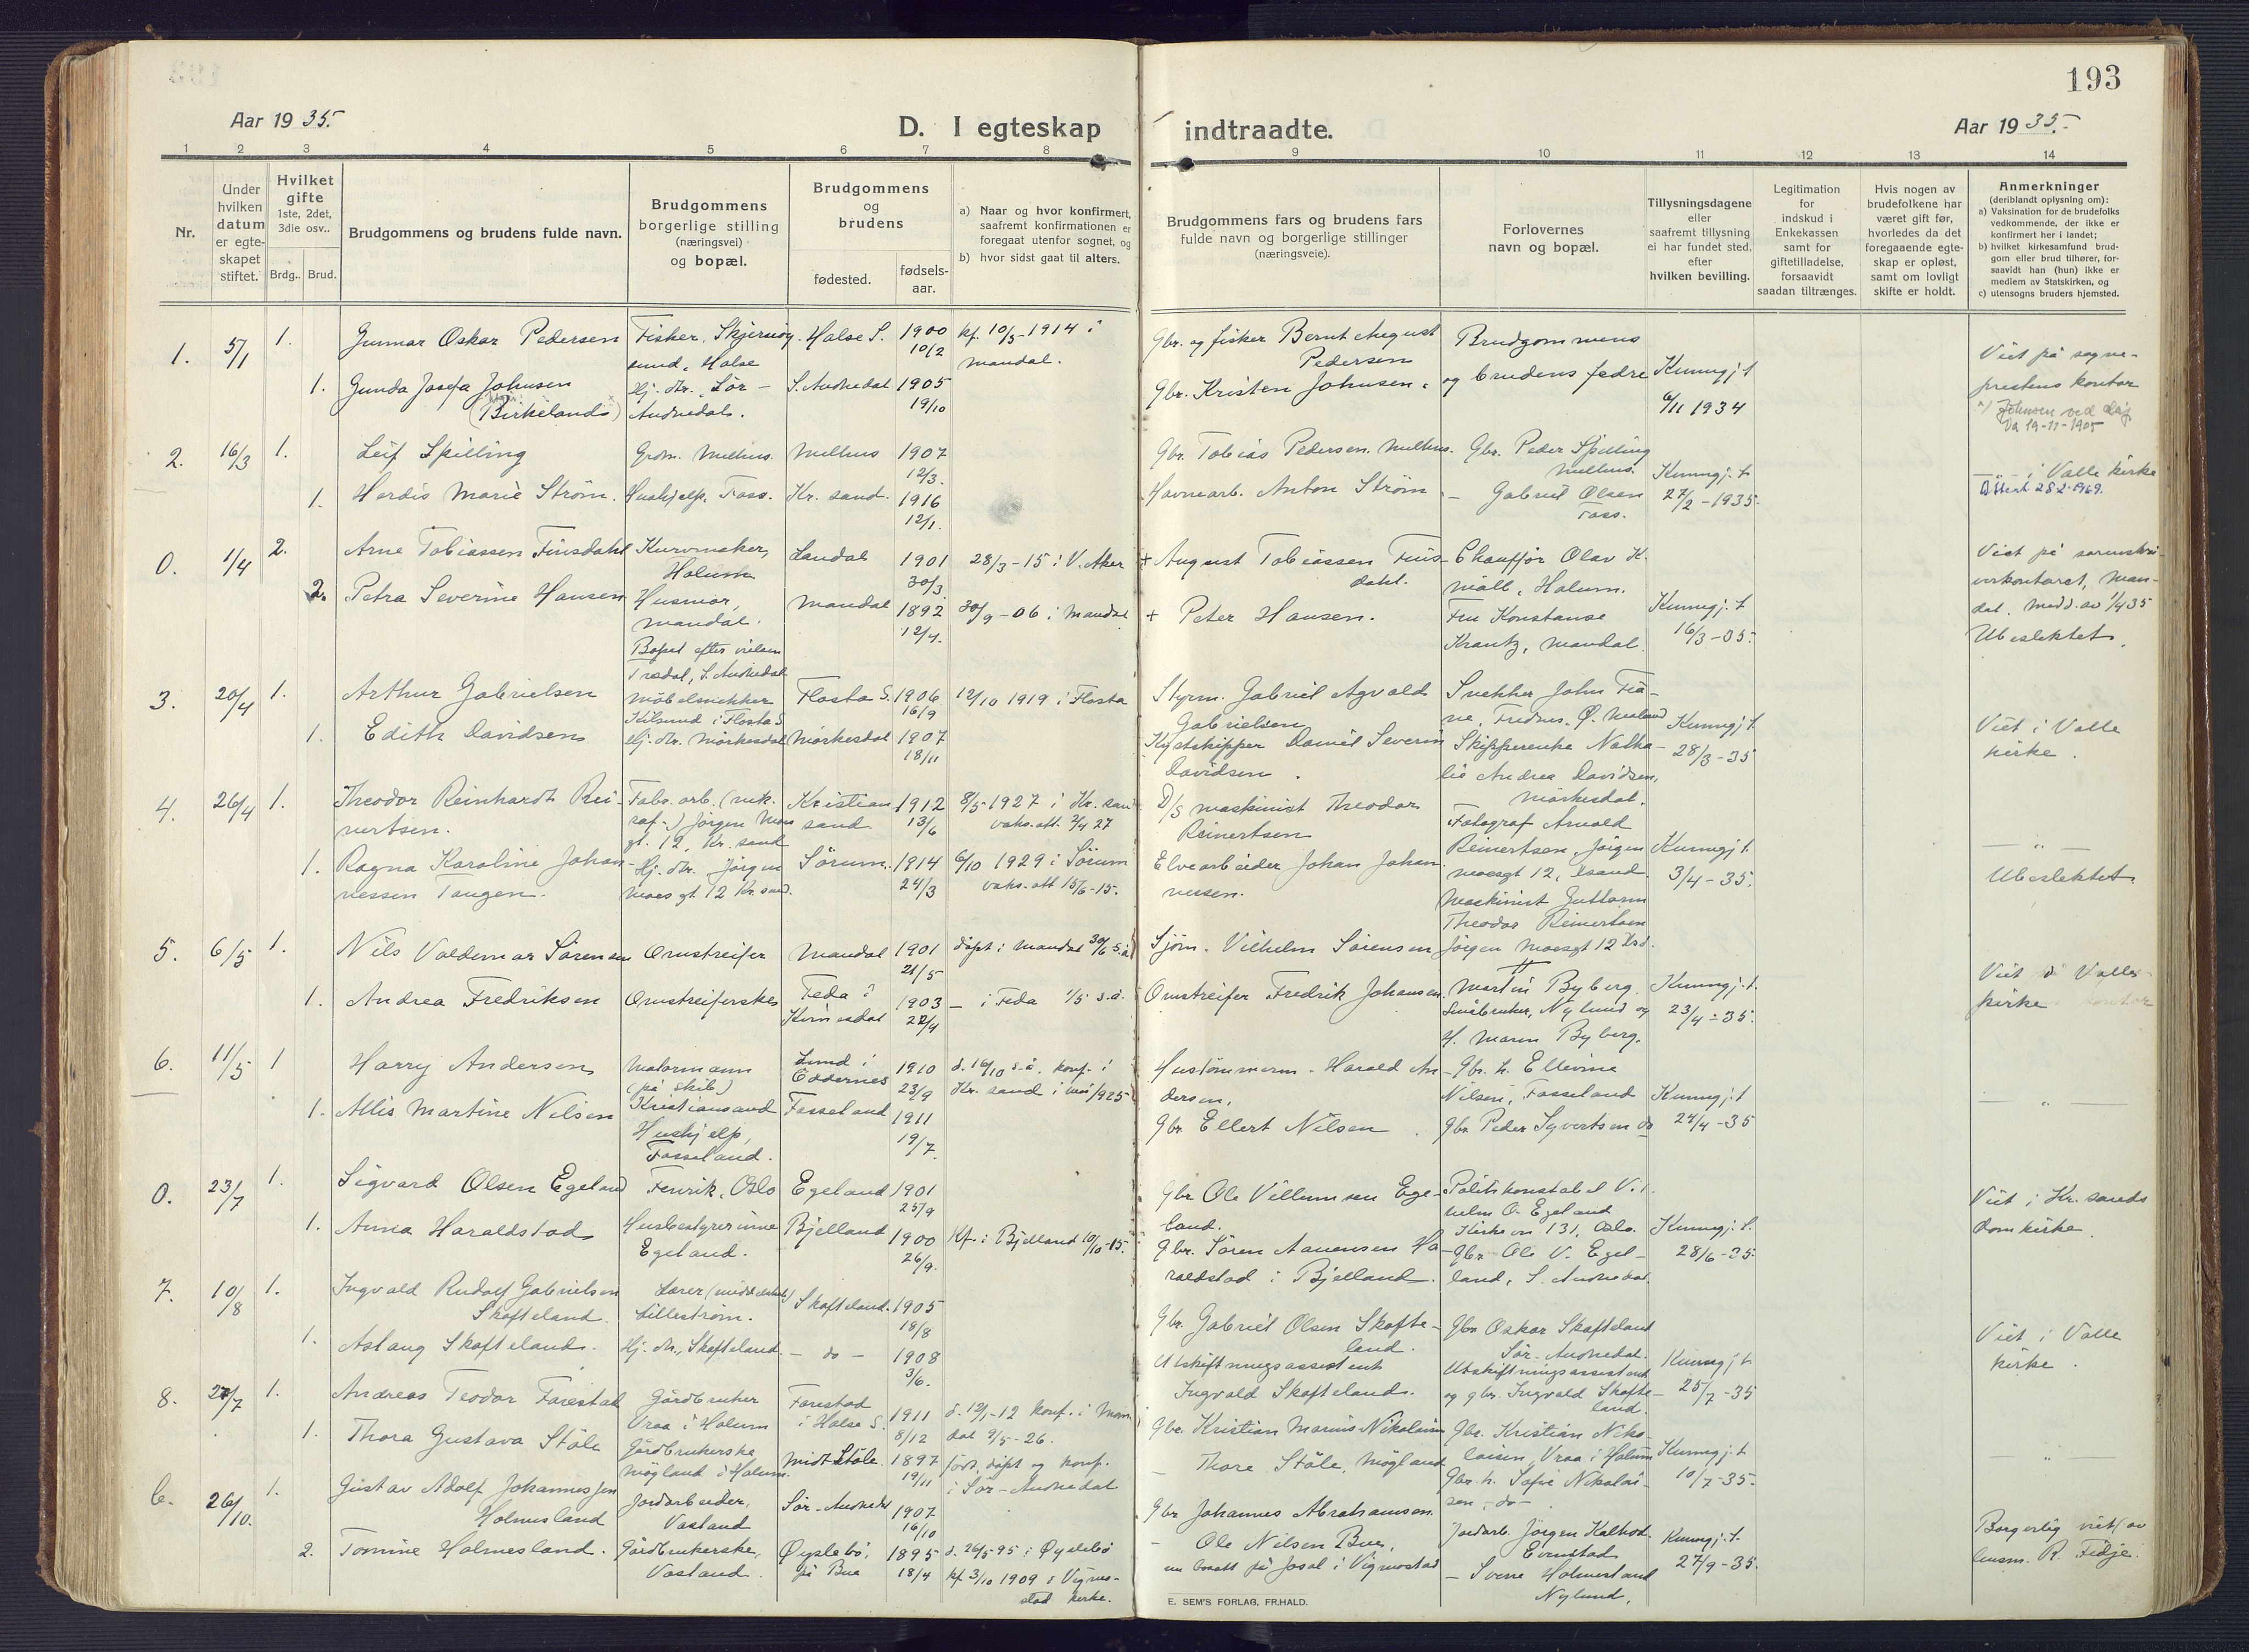 193
Aar 19 35.
D. I egteskap indtraadte.
Aar 19 35.
1 2 3 4 5 6 7 8 9 10 11 12 13 14
Nr.
Under
hvilken
datum
er egte-
skapet
stiftet.
Hvilket
gifte
1ste, 2det,
3die osv..
Brdg.. Brud.
Brudgommens og brudens fulde navn.
Brudgommens
borgerlige stilling
(næringsvei)
og bopæl.
Brudgommens
og
brudens
fødested.
fødsels-
aar.
a) Naar og hvor konfirmert,
saafremt konfirmationen er
foregaat utenfor sognet, og
b) hvor sidst gaat til alters.
Brudgommens fars og brudens fars
fulde navn og borgerlige stillinger
(næringsveie).
Forlovernes
navn og bopæl.
Tillysningsdagene
eller
saafremt tillysning
ei har fundet sted,
efter
hvilken bevilling.
Legitimation
for
indskud i
Enkekassen
samt for
giftetilladelse,
forsaavidt
saadan tiltrænges.
Hvis nogen av
brudefolkene har
været gift før,
hvorledes da det
foregaaende egte-
skap er opløst,
samt om lovligt
skifte er holdt.
Anmerkninger
(deriblandt oplysning om):
a) Vaksination for de brudefolks
vedkommende, der ikke er
konfirmert her i landet;
b) hvilket kirkesamfund brud-
gom eller brud tilhører, for-
saavidt han (hun) ikke er
medlem av Statskirken, og
c) utensogns bruders hjemsted.
1. 5/1 1. Gunnar Oskar Pedersen
Fisker, Skjernöy-
sund, Halse
Halse S. 1900
10/2
kf. 10/5-1914 i
Mandal.
Gbr. og fisker Bernt August
Pedersen
Brudgommens
og brudens fedre
1. Gunda Josefa Johnsen
(Birkeland)
Hj. dtr. Sör-
Audnedal.
S. Audnedal 1905
19/10
Gbr. Kristen Johnsen.
Kunngj. t.
6/11 1934
Viet på sogne-
prestens kontor
Johnsen ved dåp
19-11-1905
2. 16/3 1. Leif Spilling
Grdm. Melhus. Melhus 1907
12/3.
Gbr. Tobias Pedersen. Melhus.
Gbr. Peder Spilling
Melhus.
1. Herdis Marie Ström.
Hushjelp, Foss. Kr. sand. 1916
12/1.
Havnearb. Anton Ström
Gabriel Olsen
Foss.
Kunngj. t.
27/2-1935.
— „ — i Valle kirke
0. 1/4 2. Arne Tobiassen Finsdahl
Kurvmaker,
Holum
Laudal 1901
30/3.
28/3-15 i V. Aker
+ August Tobiassen Fins-
dahl.
Chauffør Olav K.
Möll, Holum.
2. Petra Severine Hansen
Husmor,
Mandal.
Bopel efter vielsen
Trædal, S. Audnedal
Mandal 1892
12/4.
30/9-06 i Mandal
+ Peter Hansen.
Fru Konstanse
Krantz, Mandal.
Kunngj. t.
16/3-35.
Viet på sorenskri-
verkontoret, Man-
dal. Medd. av 1/4 35
Ubeslektet.
3. 20/4 1. Arthur Gabrielsen
Möbelsnekker
Kilsund i Flosta S.
Flosta S. 1906
16/9
12/10 1919 i Flosta
Styrm. Gabriel Agvald
Gabrielsen
1. Edith Davidsen
Hj. dtr. Mörkesdal Mörkesdal 1907
18/11
Kystskipper Daniel Severin
Davidsen.
Skipperenke Natha-
lie Andrea Davidsen,
Mörkesdal.
Kunngj. t.
28/3-35
Viet i Valle
kirke.
4. 26/4 1. Theodor Reinhardt Rei-
nertsen.
Fabr. arb. (nik.
raf.) Jörgen Moes
gt. 12, Kr. sand
Kristian-
sand 1912
13/6
8/5 1927 i Kr. sand
vaks. att. 2/4 27
D/S maskinist Theodor
Reinertsen
Fotograf Arnold
Reinertsen, Jörgen
Moesgt 12, Krsand.
1. Ragna Karoline Johan-
nessen Tangen.
Hj. dtr. Jörgen
Moes gt 12 Kr. sand.
Sörum. 1914
24/3
6/10 1929 i Sörum
vaks. att 15/6-15.
Elvearbeider Johan Johan-
nessen.
Maskinist Guttorm
Theodor Reinertsen
Jörgen Moesgt 12 Krs.
Kunngj. t.
3/4-35.
— „ —
Ubeslektet.
5. 6/5 1. Nils Valdemar Sörensen
Omstreifer Mandal 1901
21/5
döpt i Mandal 30/6 s.å.
Sjöm. Vilhelm Sörensen
1. Andrea Fredriksen
Omstreiferske Feda i
Kvinesdal 1903
22/4
— i Feda 1/5 s.å.
Omstreifer Fredrik Johansen.
Martin Byberg.
Småbruker, Nylund og
H. Maren Byberg.
Kunngj. t.
23/4-35.
Viet i Valle
kirke
6. 11/5 1 Harry Andersen
Matormann
(på skib)
Kristiansand
Lund i
Oddernes 1910
23/9
d. 16/10 s.å. konf. i
Kr. sand i mai 1925
Hustömmerm. Harald An-
dersen.
Gbr. h. Ellevine
Nilsen, Fasseland
1. Allis Martine Nilsen
Hushjelp,
Fasseland.
Fasseland 1911
19/7.
Gbr. Ellert Nilsen.
Gbr. Peder Syvertsen do
Kunngj. t
24/4-35
— „ —
0. 23/7 1. Sigvard Olsen Egeland
Fenrik, Oslo Egeland 1901
25/9
Gbr Ole Villumsen Ege-
land.
Politikonstabel Vil-
helm O. Egeland
Kirkevn 131, Oslo.
1. Anna Haraldstad
Husbestyrerinne
Egeland.
Bjelland 1900
26/9.
Kf. i Bjelland 10/10-15.
Gbr. Sören Aanensen Ha-
raldstad i Bjelland.
Gbr. Ole V. Egel-
land, S. Audnedal.
Kunngj. t.
28/6-35.
Viet i Kr. sands
domkirke.
7. 10/8 1. Ingvald Rudolf Gabrielsen
Skofteland.
Lærer
Lillestrøm.
Skofteland. 1905
18/8
Gbr. Gabriel Olsen Skofte-
land.
Gbr Oskar Skofteland
Sör-Audnedal.
1. Aslaug Skofteland.
Hj. dtr., Skofteland. — do — 1908
3/6.
Utskiftningsassistent
Ingvald Skofteland.
Utskiftningsassistent
og gbr. Ingvald Skofte-
land.
Kunngj. t.
25/7-35
Viet i Valle
kirke.
8. 27/7 1. Andreas Teodor Færestad
Gårdbruker
Vraa i Holum
Færestad
i Halse S. 1911
8/12
d. 12/1-12 konf. i Man-
dal 9/5-26.
Gbr. Kristian Marius Nikolaisen
Gbr. Kristian Niko-
laisen, Vraa i Holum
1. Thora Gustava Ståle
Gårdbrukerske
Mögland i Holum.
Midt Ståle. 1897
19/11
födt, döpt og konf.
i Sör-Audnedal
— Thore Ståle, Mögland
Gbr. h. Sofie Nikolai-
sen, — do —
Kunngj. t.
10/7-35.
— „ —
26/10. 1. Gustav Adolf Johannessen
Holmesland
Jordarbeider,
Vasland
Sör-Audnedal 1907
16/10
Gbr Johannes Abrahamsen.
Jordarb. Jörgen
2. Tomine Holmesland.
Gårdbrukerske,
Vasland.
Öyslebö,
på Bue 1895
18/4
d. 26/5-95 i Öyslebö
kf 3/10 1909 i Vigmo-
stad kirke.
— Ole Nilsen Bue,
nu bosatt på Josal i Vigmostad
— Sverre Holmesland
Nylund.
Kunngj. t.
27/9-35.
Borgerlig viet av
lensm. R. Fidje.
E. SEM'S FORLAG, FR.HALD.